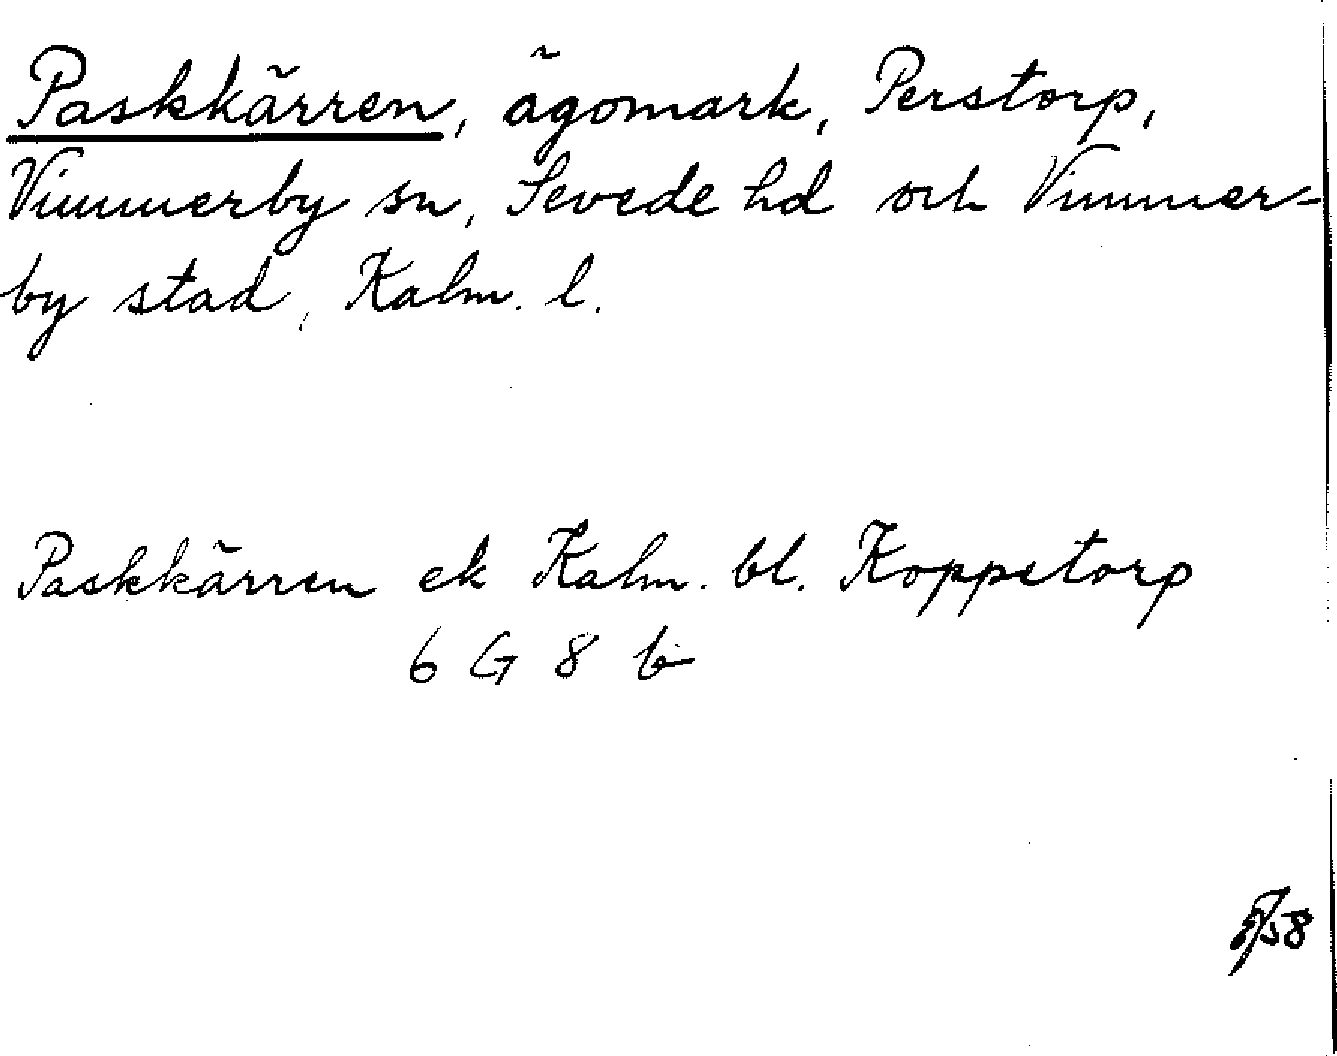 Paskkärren, ägomark, Perstorp,
Vimmerby sn, Sevede hd och Vimmer-
by stad, Kalm. l.
Paskkärren ek Kalm. bl. Koppetorp
6 G 8 b